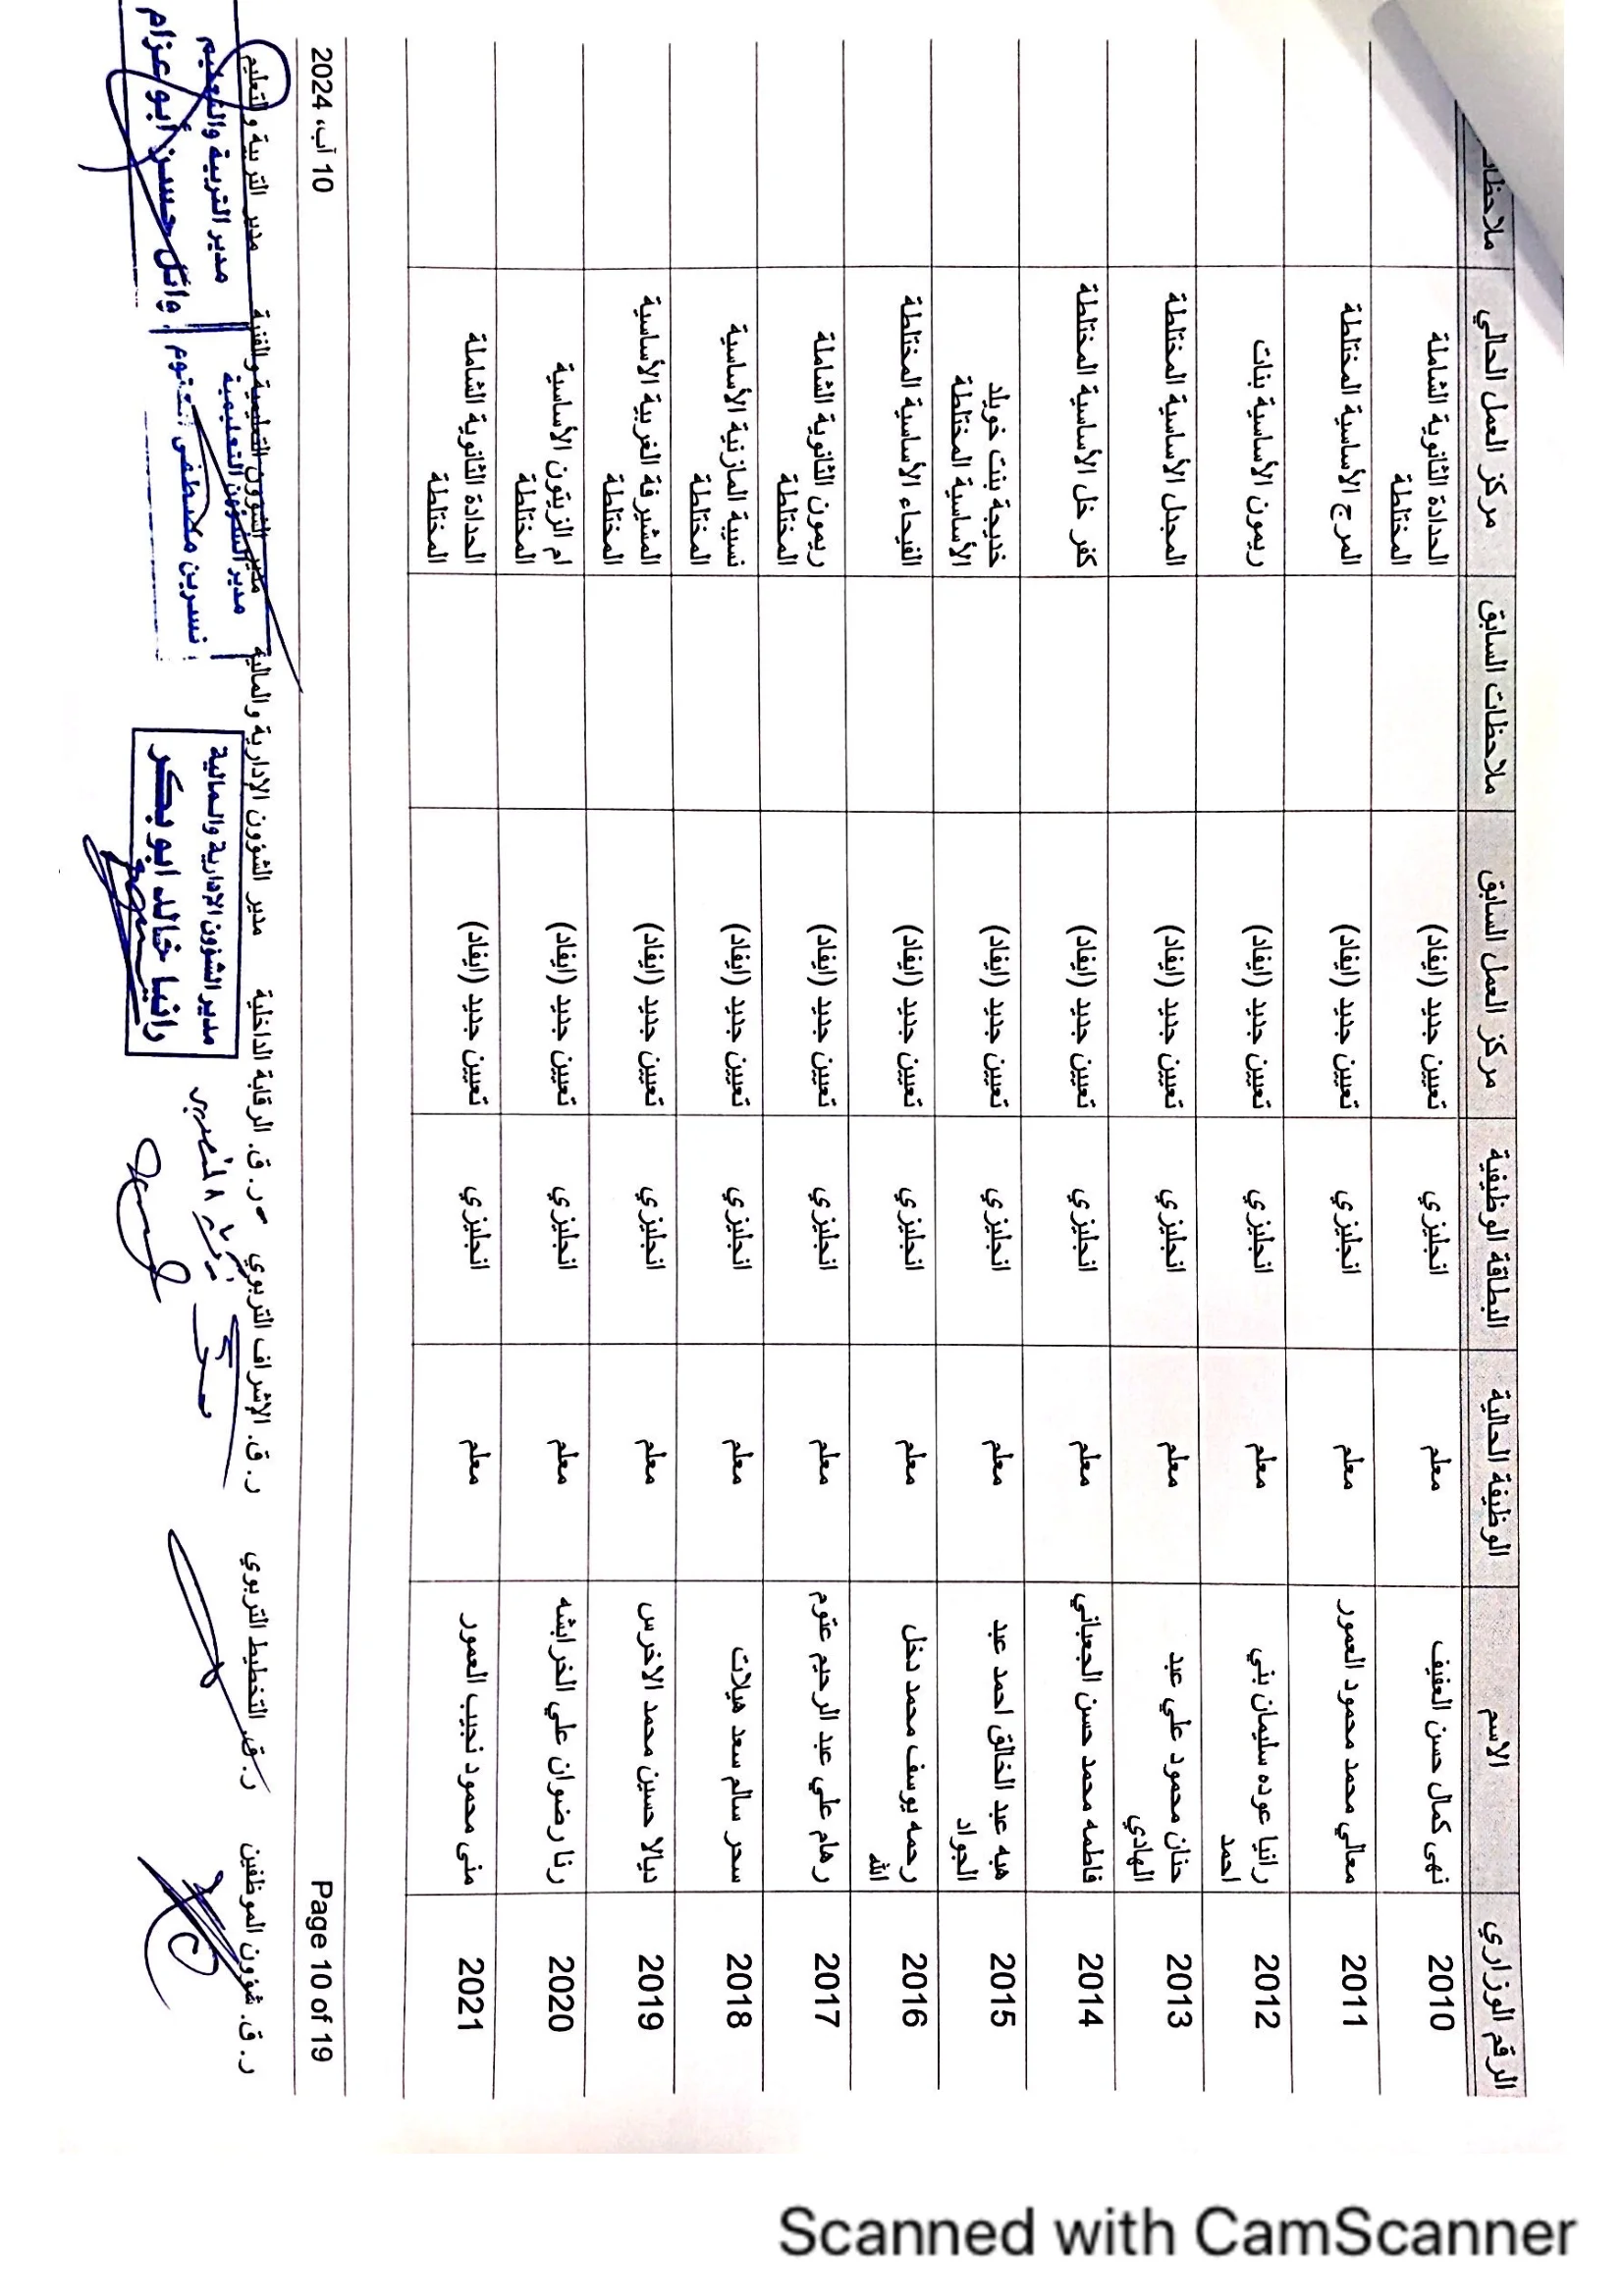 الرقم الوزاري الاسم الوظيفة الحالية البطاقة الوظيفية مركز العمل السابق ملاحظات السابق مركز العمل الحالي
2010 نهى كمال حسن العفيف معلم انجليزي تعيين جديد (ايفاد) الحدادة الثانوية الشاملة
المختلطة
2011 معالي محمد محمود العمور معلم انجليزي تعيين جديد (ايفاد) المرج الأساسية المختلطة
2012 رانيا عوده سليمان بني معلم انجليزي تعيين جديد (ايفاد) ريمون الأساسية بنات
احمد
2013 حنان محمود علي عبد معلم انجليزي تعيين جديد (ايفاد) المجدل الأساسية المختلطة
الهادي
2014 فاطمه محمد حسن الجعباني معلم انجليزي تعيين جديد (ايفاد) كفر خل الأساسية المختلطة
2015 هبه عبد الخالق احمد عبد معلم انجليزي تعيين جديد (ايفاد) خديجة بنت خويلد
الجواد الأساسية المختلطة
2016 رحمه يوسف محمد دخل معلم انجليزي تعيين جديد (ايفاد) الفيحاء الأساسية المختلطة
الله
2017 رهام علي عبد الرحيم عتوم معلم انجليزي تعيين جديد (ايفاد) ريمون الثانوية الشاملة
المختلطة
2018 سحر سالم سعد هيلات معلم انجليزي تعيين جديد (ايفاد) نسيبة المازنية الأساسية
المختلطة
2019 ديالا حسين محمد الاخرس معلم انجليزي تعيين جديد (ايفاد) المشيرفة الغربية الأساسية
المختلطة
2020 رنا رضوان علي الخرابشه معلم انجليزي تعيين جديد (ايفاد) ام الزيتون الأساسية
المختلطة
2021 منى محمود نجيب العمور معلم انجليزي تعيين جديد (ايفاد) الحدادة الثانوية الشاملة
المختلطة
Page 10 of 19 10 آب، 2024
ر. ق. شؤون الموظفين ر. ق. التخطيط التربوي ر. ق. الإشراف التربوي ر. ق. الرقابة الداخلية مدير الشؤون الإدارية والمالية مدير الشؤون التعليمية والفنية مدير التربية والتعليم
مدير الشؤون الإدارية والمالية
رانيا خالد ابو بكر
مدير الشؤون التعليمية
نسرين مصطفى العتوم
مدير التربية والتعليم
وائل حسن أبو عزام
Scanned with CamScanner